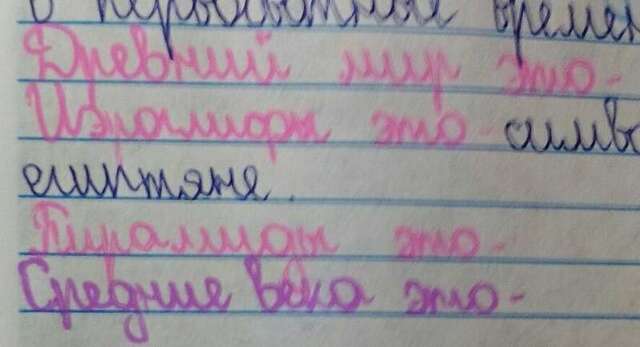 В первобытные времен
Древний мир это-
это - симво
египтяне.
Пирамиды это-
Средние века это-